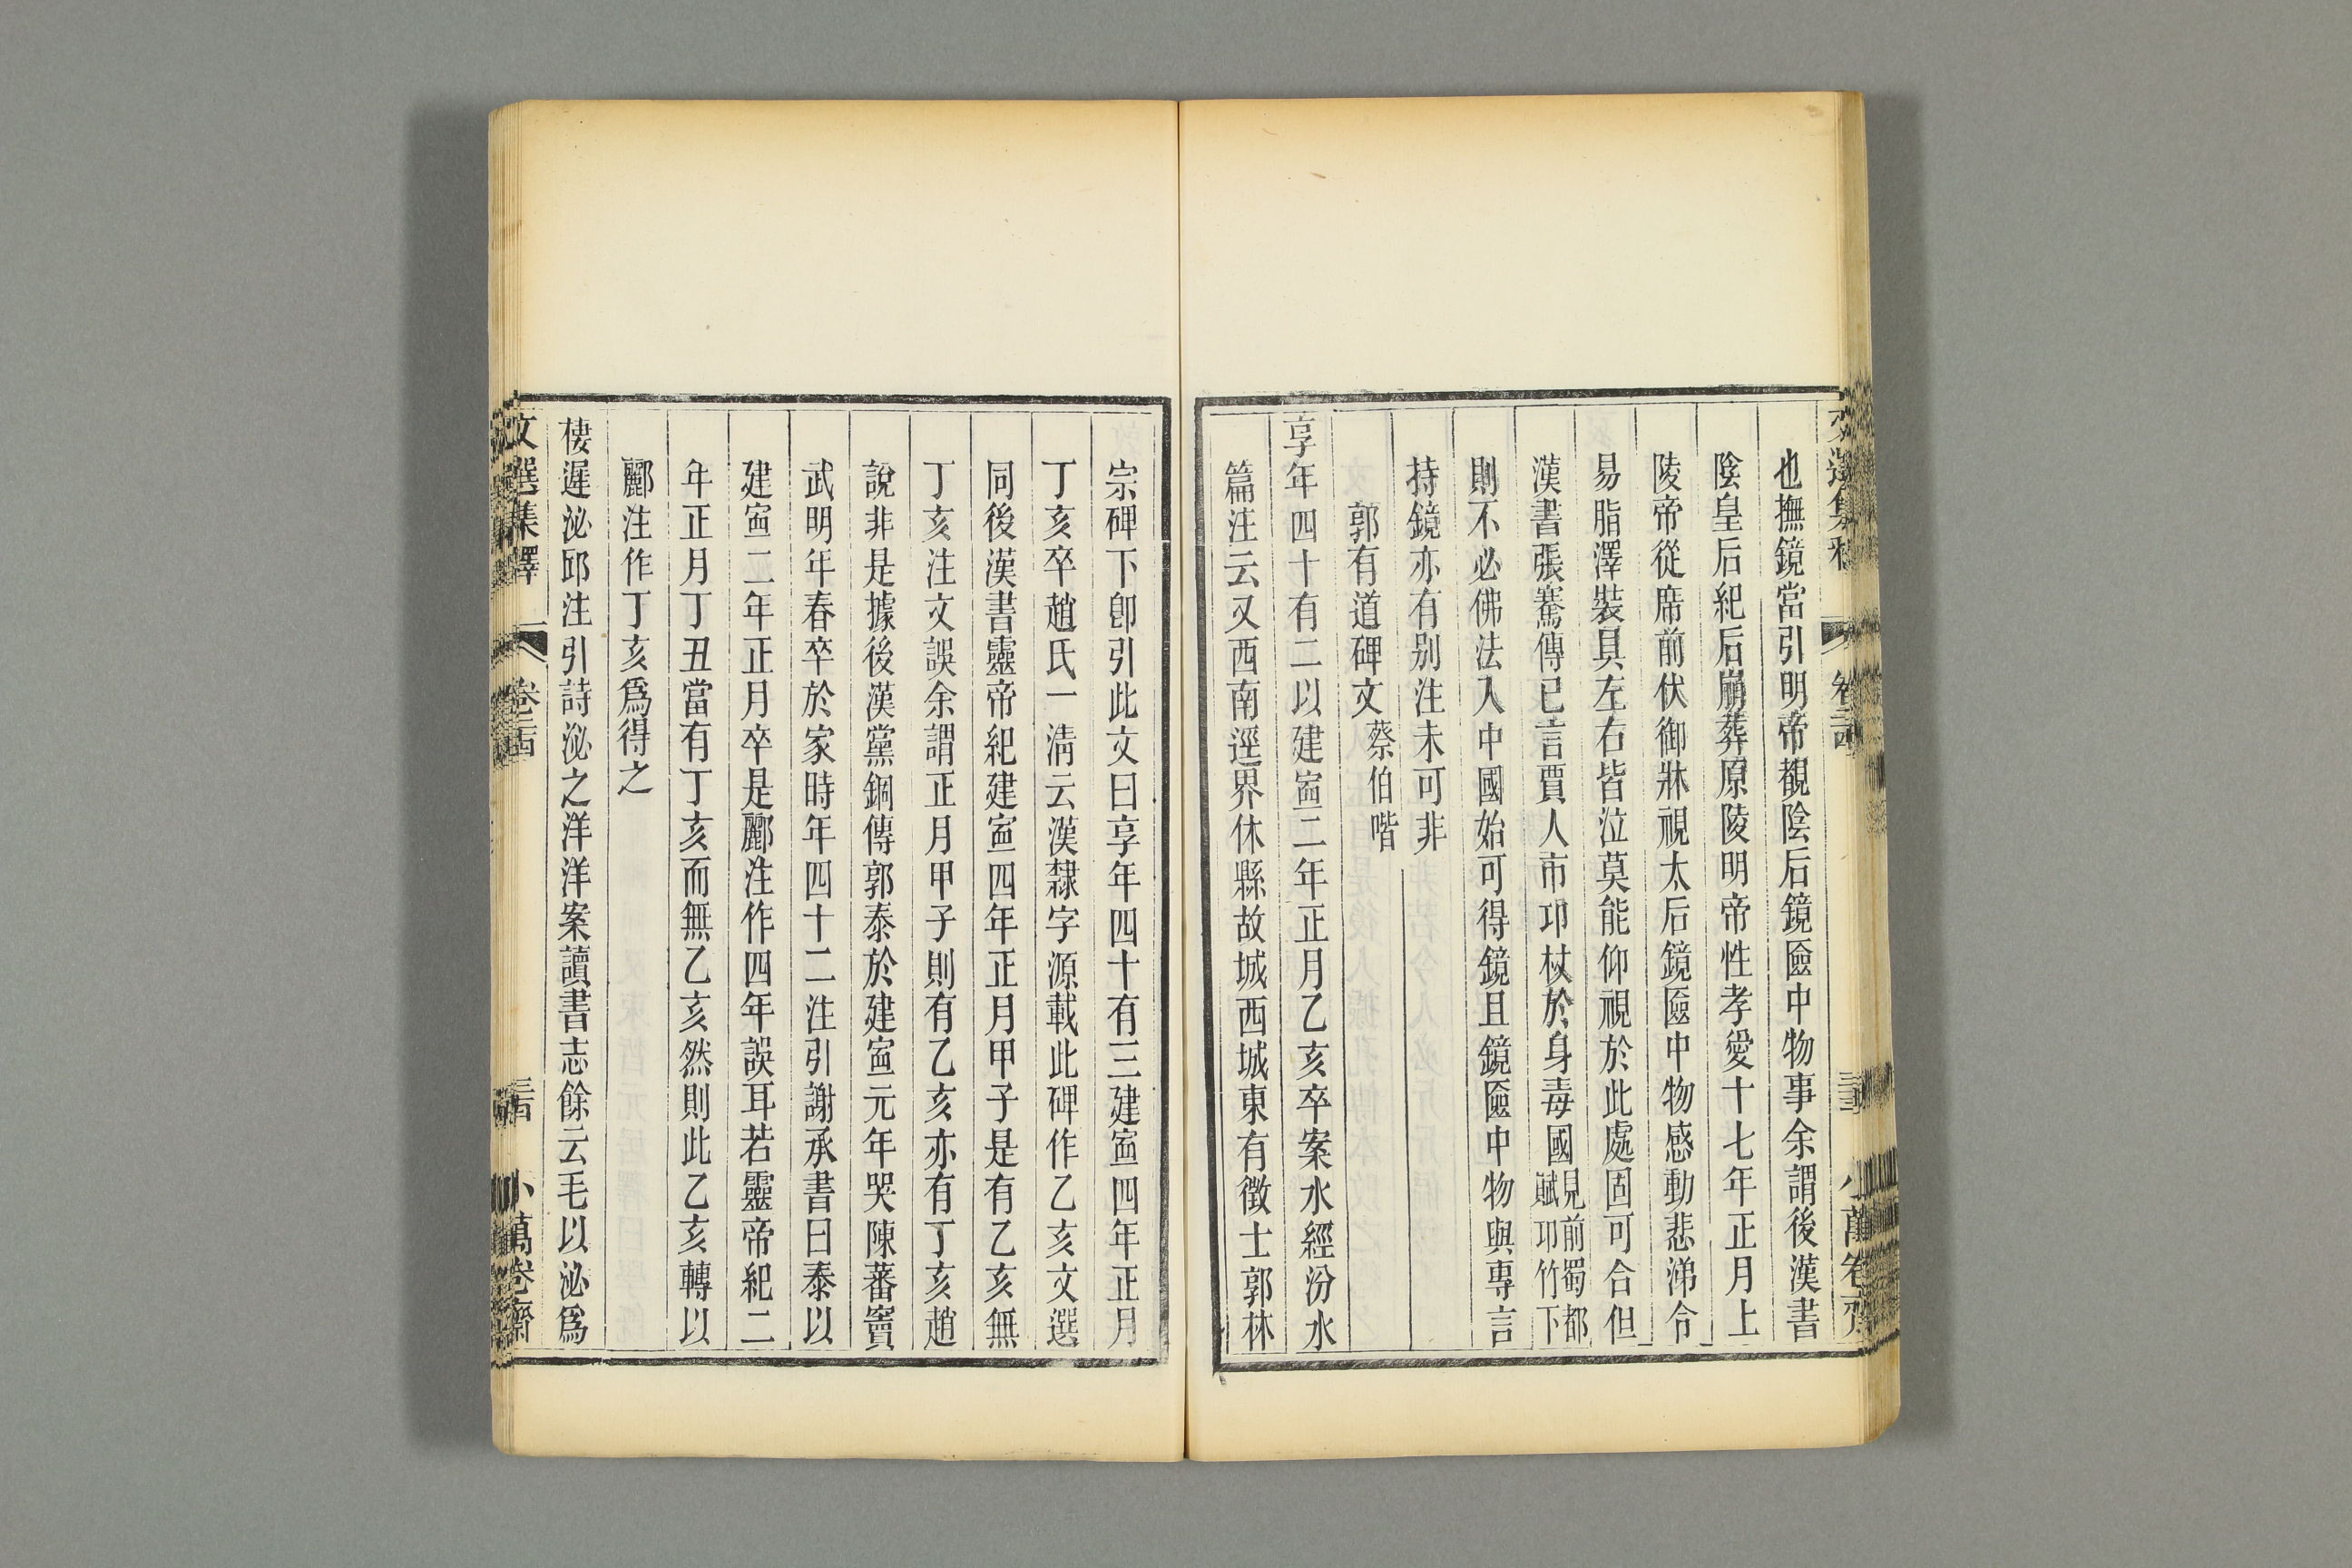 也撫鏡當引明帝覩陰后鏡匳中物事余謂後漢書
陰皇后紀后崩葬原陵明帝性孝愛十七年正月上
陵帝從席前伏御牀視太后鏡匳中物感動悲涕令
易脂澤裝具左右皆泣莫能仰視於此處固可合但
漢書張騫傳已言賈人市邛杖於身毒國見前蜀都賦邛竹下
則不必佛法入中國始可得鏡且鏡匳中物與專言
持鏡亦有别注未可非
郭有道碑文 蔡伯喈
享年四十有二以建寍二年正月乙亥卒案水經汾水
篇注云又西南逕界休縣故城西城東有徵士郭林
宗碑下卽引此文曰享年四十有三建寍四年正月
丁亥卒趙氏一淸云漢隸字源載此碑作乙亥文選
同後漢書靈帝紀建寍四年正月甲子是有乙亥無
丁亥注文誤余謂正月甲子則有乙亥亦有丁亥趙
說非是據後漢黨錮傳郭泰於建寍元年哭陳蕃竇
武明年春卒於家時年四十二注引謝承書曰泰以
建寍二年正月卒是酈注作四年誤耳若靈帝紀二
年正月丁丑當有丁亥而無乙亥然則此乙亥轉以
酈注作丁亥爲得之
棲遲泌邱注引詩泌之洋洋案讀書志餘云毛以泌爲
文選集釋 卷二十四 三十四 小萬卷齋